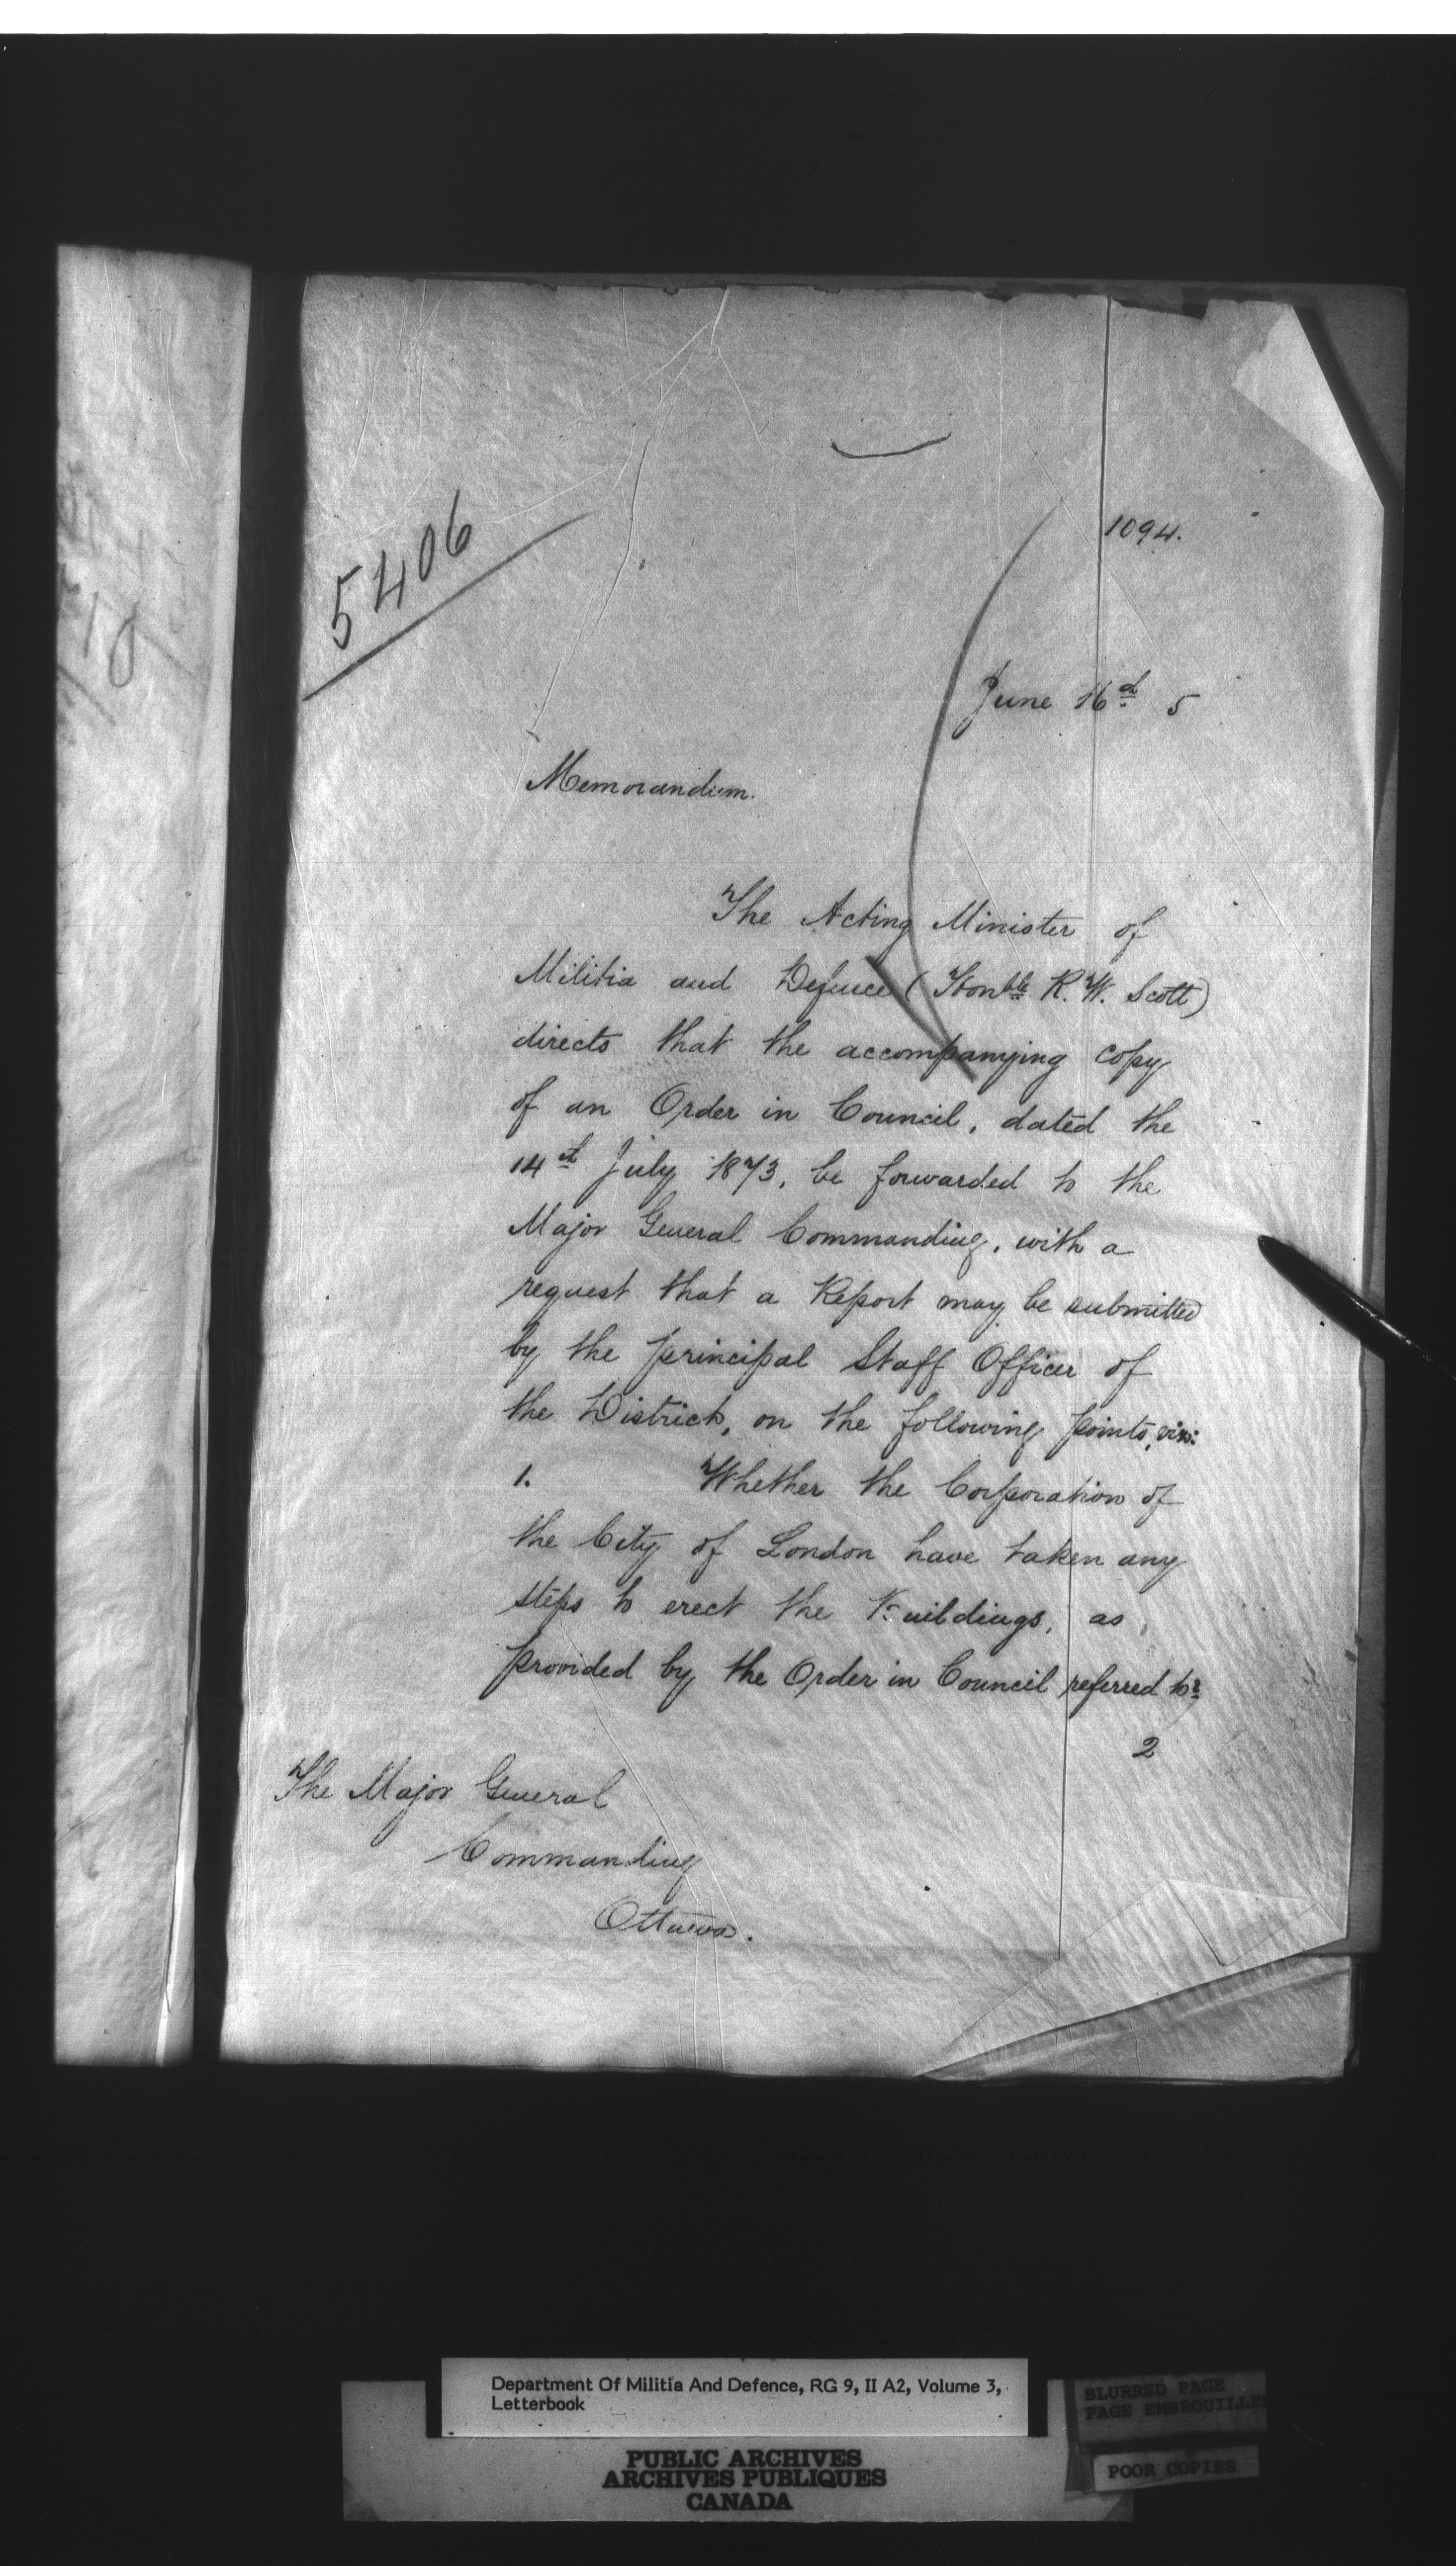 5406
1094.
June 16th 5
Memorandum.
The Acting Minister of
Militia and Defence (Honble R. W. Scott)
directs that the accompanying copy
of an Order in Council, dated the
14th July 1873, be forwarded to the
Major General Commanding, with a
request that a Report may be submitted
by the principal Staff Officer of
the District, on the following points, viz:
1. Whether the Corporation of
the City of London have taken any
steps to erect the Buildings, as
provided by the Order in Council referred to?
2
The Major General
Commanding
Ottawa.
Department Of Militia And Defence, RG 9, II A2, Volume 3,
Letterbook
BLURRED PAGE
PAGE EMBROUILLE
POOR COPIES
PUBLIC ARCHIVES
ARCHIVES PUBLIQUES
CANADA